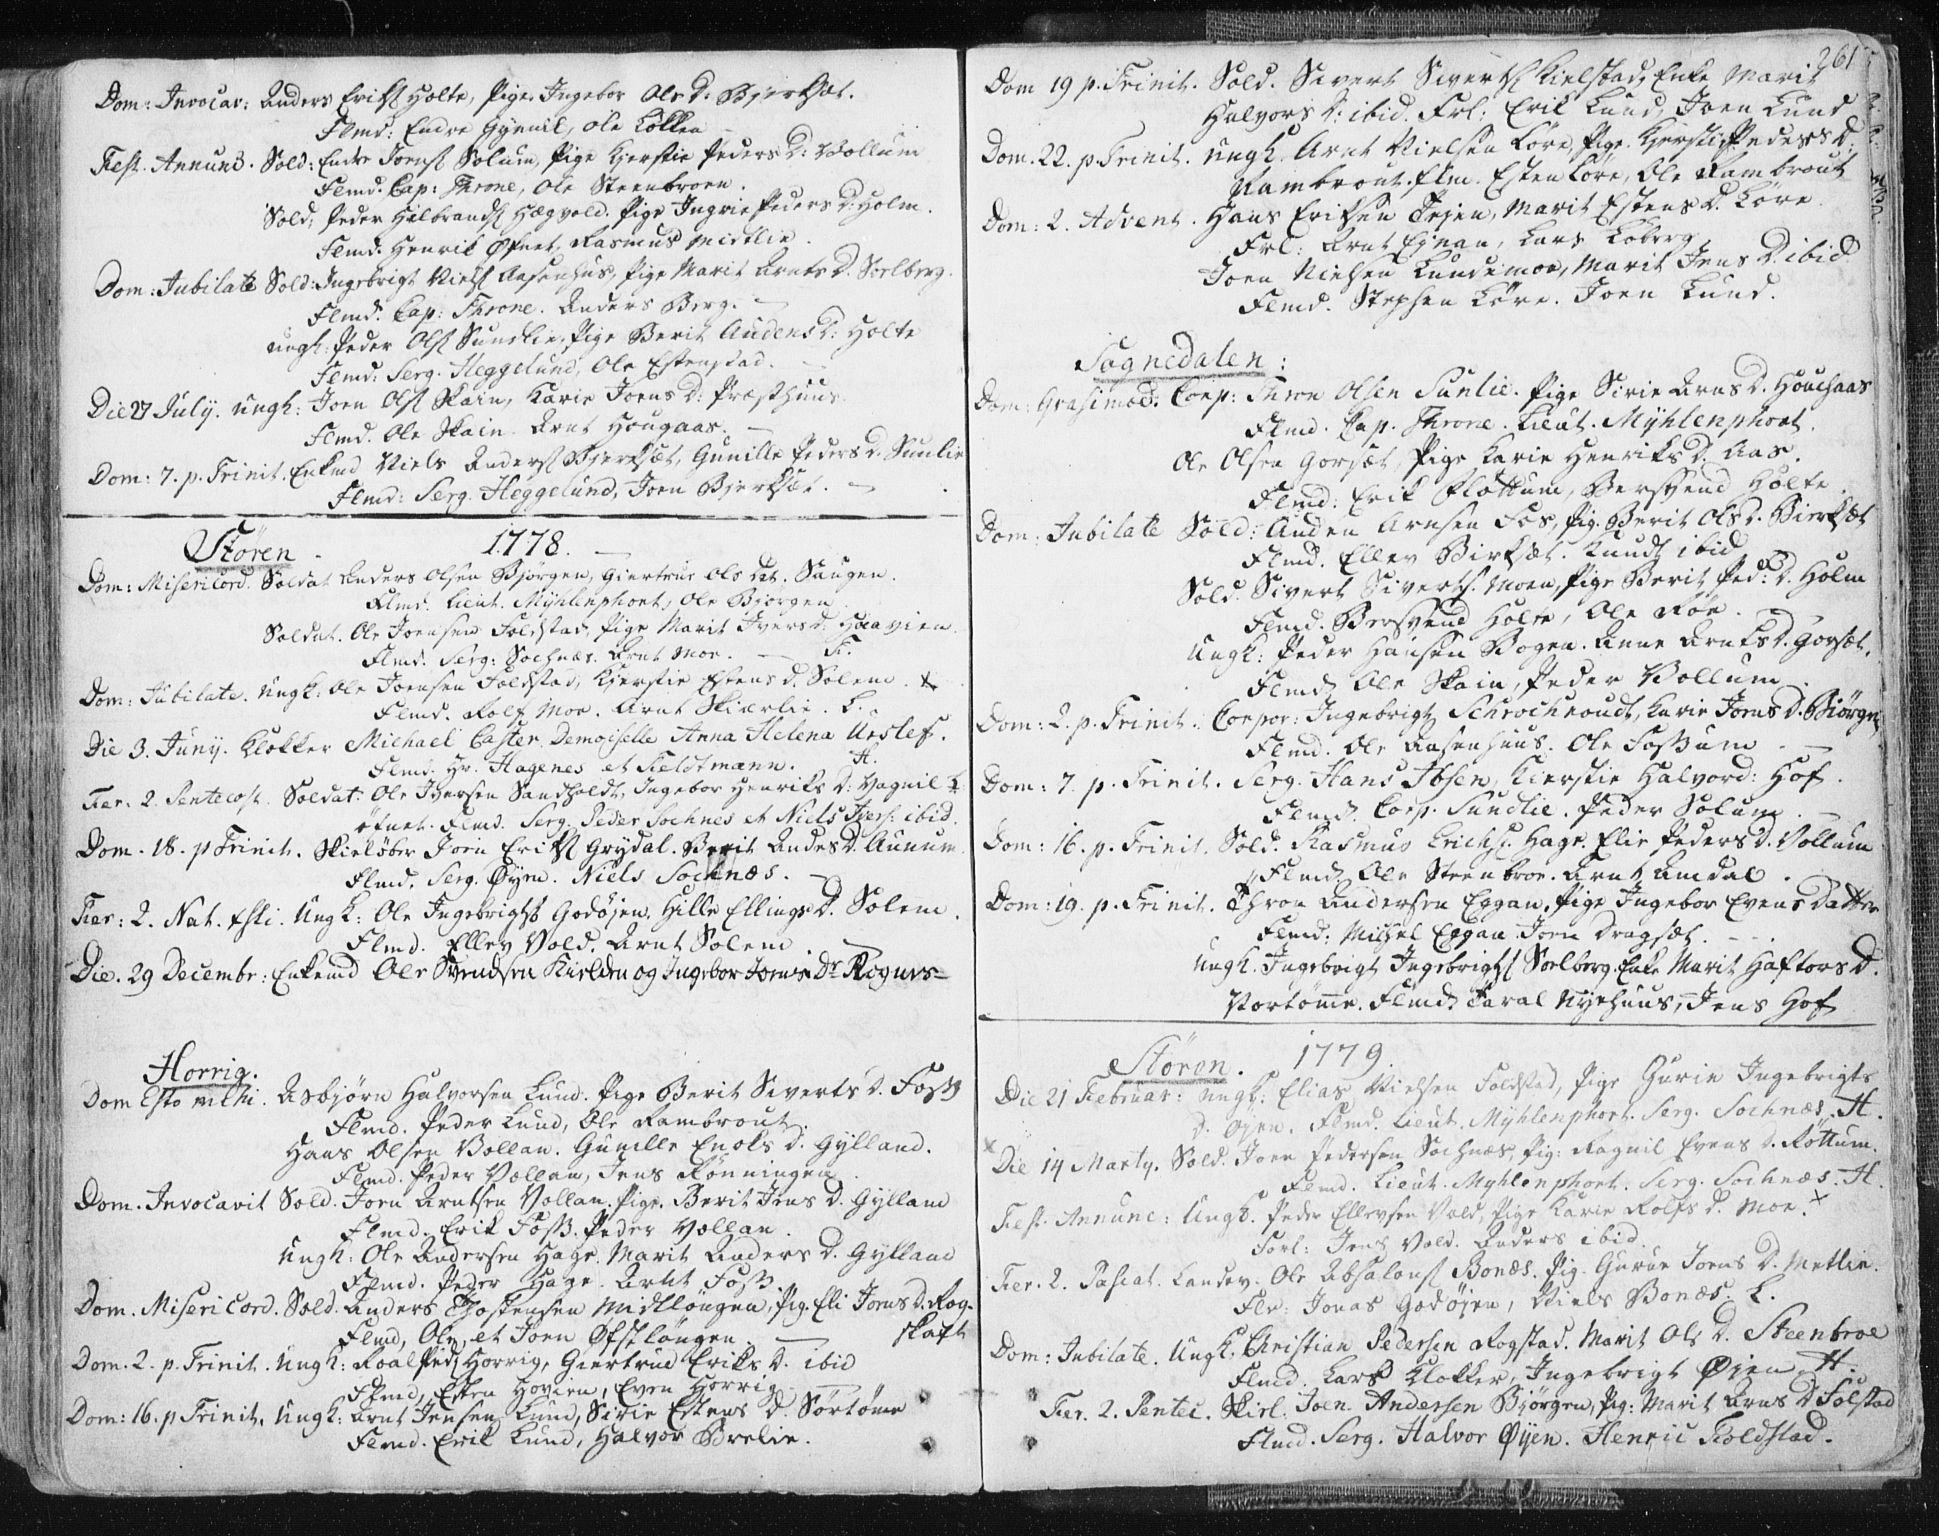 Dom: Invocav: Anders Erichs Holte, Pige Ingebor Ols D: Bjerksæt.
Flmd: Endre Gynnil, Ole Løkken
Fest. Annunc. Sold: Endre Joens Solum, Pige Kjerstie Peders D: Vollum
Flmd. Cap: Throne, Ole Steenbroen.
Sold. Peder Hilbrands Hægvold. Pige Ingrie Peders D. Holm.
Flmd. Henrik Øfnet, Rasmus Midtlie.
Dom: Jubilate Sold: Ingebrigt Niels Aasenhus, Pige Marit Arnts D. Soelberg.
Flmd. Cap: Throne. Anders Berg.
ungk: Peder Ols Sundlie, Pige Berit Audens D: Holte
Flmd: Serg. Heggelund, Ole Estenstad.
Die 27 July. ungk: Joen Ols Skain, Karie Joens D: Præsthuus
Flmd. Ole Skain. Arnt Hougaas.
Dom: 7. p. Trinit. Enkmd Niels Anders Bjerksæt, Gunille Peders D. Sunlie
Flmd: Serg. Heggelund, Joen Bjerksæt.
Støren 1778.
Dom: Misericord. Soldat Anders Olsen Bjørgen, Giertrue Ols Dat. Haugen.
Flmd. Lieut. Mÿhlenphort, Ole Bjørgen
Soldat. Ole Joensen Foldstad, Pige Marit Ivers D. Haavien.
Flmd. Serg: Sochnæs. Arnt Moe. H.
Dom: Jubilate. Ungk: Ole Joensen Foldstad, Kjerstie Estens D. Solem.
Flmd. Rolf Moe. Arnt Skiærlie. L.
Die 3. Junÿ. Klokker Michael Caster Demoiselle Anna Helena Urslef.
Flmd. Hr. Hagenes et Feldtmann. H.
Fer: 2. Pentecost. Soldat: Ole Iversen Sandholdt, Ingebor Henriks D: Vagnil
øfnet. Flmd. Serg. Peder Sochnes et Niels Ivers: ibid.
Dom. 18. p Trinit. Skieløber Joen Eriks Grydal. Berit Andes D. Aunum
Flmd. Serg. Øyen. Niels Sochnæs.
Fer: 2. Nat. Xsti. Ungk: Ole Ingebrigts Godøjen. Hille Ellings D. Solem.
Flmd. Ellev Vold. Arnt Solem
Die. 29 Decembr: Enkemd Ole Svendsen Kielden og Ingebor Joens Dr Rognes
Horrig.
Dom Esto mihi. Asbjørn Halvorsen Lund. Pige Berit Siverts D. Foss
Flmd. Peder Lund, Ole Rambrout.
Hans Olsen Vollan. Gunille Enoks D. Gylland.
Flmd. Peder Vollan, Jens Rønningen.
Dom. Invocavit Sold. Joen Arntsen Vollan. Pige. Berit Jens D. Gylland
Flmd. Erik Foss. Peder Vollan.
Ungk: Ole Andersen Hage. Marit Anders D. Gylland
Flmd. Peder Hage. Arnt Foss
Dom. Misericord. Sold. Anders Thostensen Midtløngen, Pig. Eli Joens D. Rog-
skaft
Flmd, Ole, et Joen Øfstløngen.
Dom. 2. p. Trinit. Ungk: Roal Peds Horrig, Giertrue Eriks D. ibid
Flmd, Esten Hovien, Even Horrig.
Dom: 16. p Trinit. Ungk: Arnt Jensen Lund, Sirie Estens D. Sørtøme
Flmd. Erik Lund, Halvor Brelie.
261
Dom 19 p. Trinit. Sold. Sivert Siverts Kielstad, Enke Marit
Halvors D: ibid. Frl: Erik Lund, Joen Lund
Dom. 22. p. Trinit. ungk. Arnt Nielsen Løre, Pige. Kjersti Peders D.
Rambrout. flm. Esten Løre, Ole Rambrout
Dom: 2. Advent. Hans Eriksen Trøjen, Marit Estens D. Løre.
Frl: Arnt Egnan, Lars Loberg
Joen Nielsen Lundemoe, Marit Jens D. ibid
Flmd. Stephen Løre. Joen Lund.
Sognedalen:
Dom: Qvasimod: Corp: Thron Olsen Sunlie. Pige Sirie Arns D. Houchaas
Flmd. Cap. Throne. Lieut. Mÿhlenphort.
Ole Olsen Gorsæt, Pige Karie Henriks D. Aas.
Flmd: Erik Flottum, Bersvend Holte.
Dom: Jubilate Sold: Auden Arnsen Fos, Pig. Berit Ols D. Bierksæt
Flmd. Ellev Birksæt. Knud ibid
Sold. Sivert Siverts. Moen, Pige Berit Ped: D. Holm
Flmd. Bersvend Holte, Ole Røe.
Ungk: Peder Hansen Bogen. Anne Arnts D. Gorsæt.
Flmd, Ole Skain, Peder Vollum
Dom: 2. p. Trinit. Corpor: Ingebrigt Schrochroudt, Karie Joens D. Biørgn
Flmd. Ole Aasenhuus. Ole Fossum
Dom: 7. p. Trinit. Serg. Hans Ibsen, Kierstie Halvord: Hof.
Flmd. Corp. Sundlie. Peder Solum.
Dom: 16. p. Trinit. Sold. Rasmus Erichs. Hage. Elie Peders D. Vollum
Flmd. Ole Steenbroe. Arnt Amdal.
Dom: 19. p. Trinit. Thron Andersen Eggan, Pige Ingebor Evens Datter
Flmd: Michel Eggan Joen Dragsæt.
ungk. Ingebrigt Ingebrigts Soelberg. Enke Marit Haftors D.
Vortøme. Flmd. Taral Nyehuus, Jens Hof
Støren. 1779.
Die 21 Februar: ungk: Elias Nielsen Foldstad, Pige Gurie Ingebrigts
D. Øjen. Flmd. Lieut. Mÿhlenphort. Serg. Sochnæs. H.
Die 14 Marty. Sold. Joen Pedersen Sochnæs, Pig: Ragnil Evens D. Røttum.
Flmd. Lieut. Mÿhlenphort. Serg. Sochnæs. H.
Fest. Annunc: Ungk. Peder Ellevsen Vold, Pige Karie Rolfs D. Moe.
Forl: Jens Vold. Anders ibid
Fer. 2. Pascat. Landev. Ole Absalons Bonæs. Pig. Gurie Joens D. Metlie.
Flr: Jonas Godøjen, Niels Bonæs. L.
Dom: Jubilate. Ungk. Christian Pedersen Rogstad. Marit Ols D. Steenbroe
Flmd. Lars Klokker, Ingebrigt Øien H.
Fer. 2. Pentec. Skirl: Joen Andersen Bjørgen, Pig: Marit Arns D Folstad
Flmd. Serg. Halvor Øyen. Henric Foldstad.